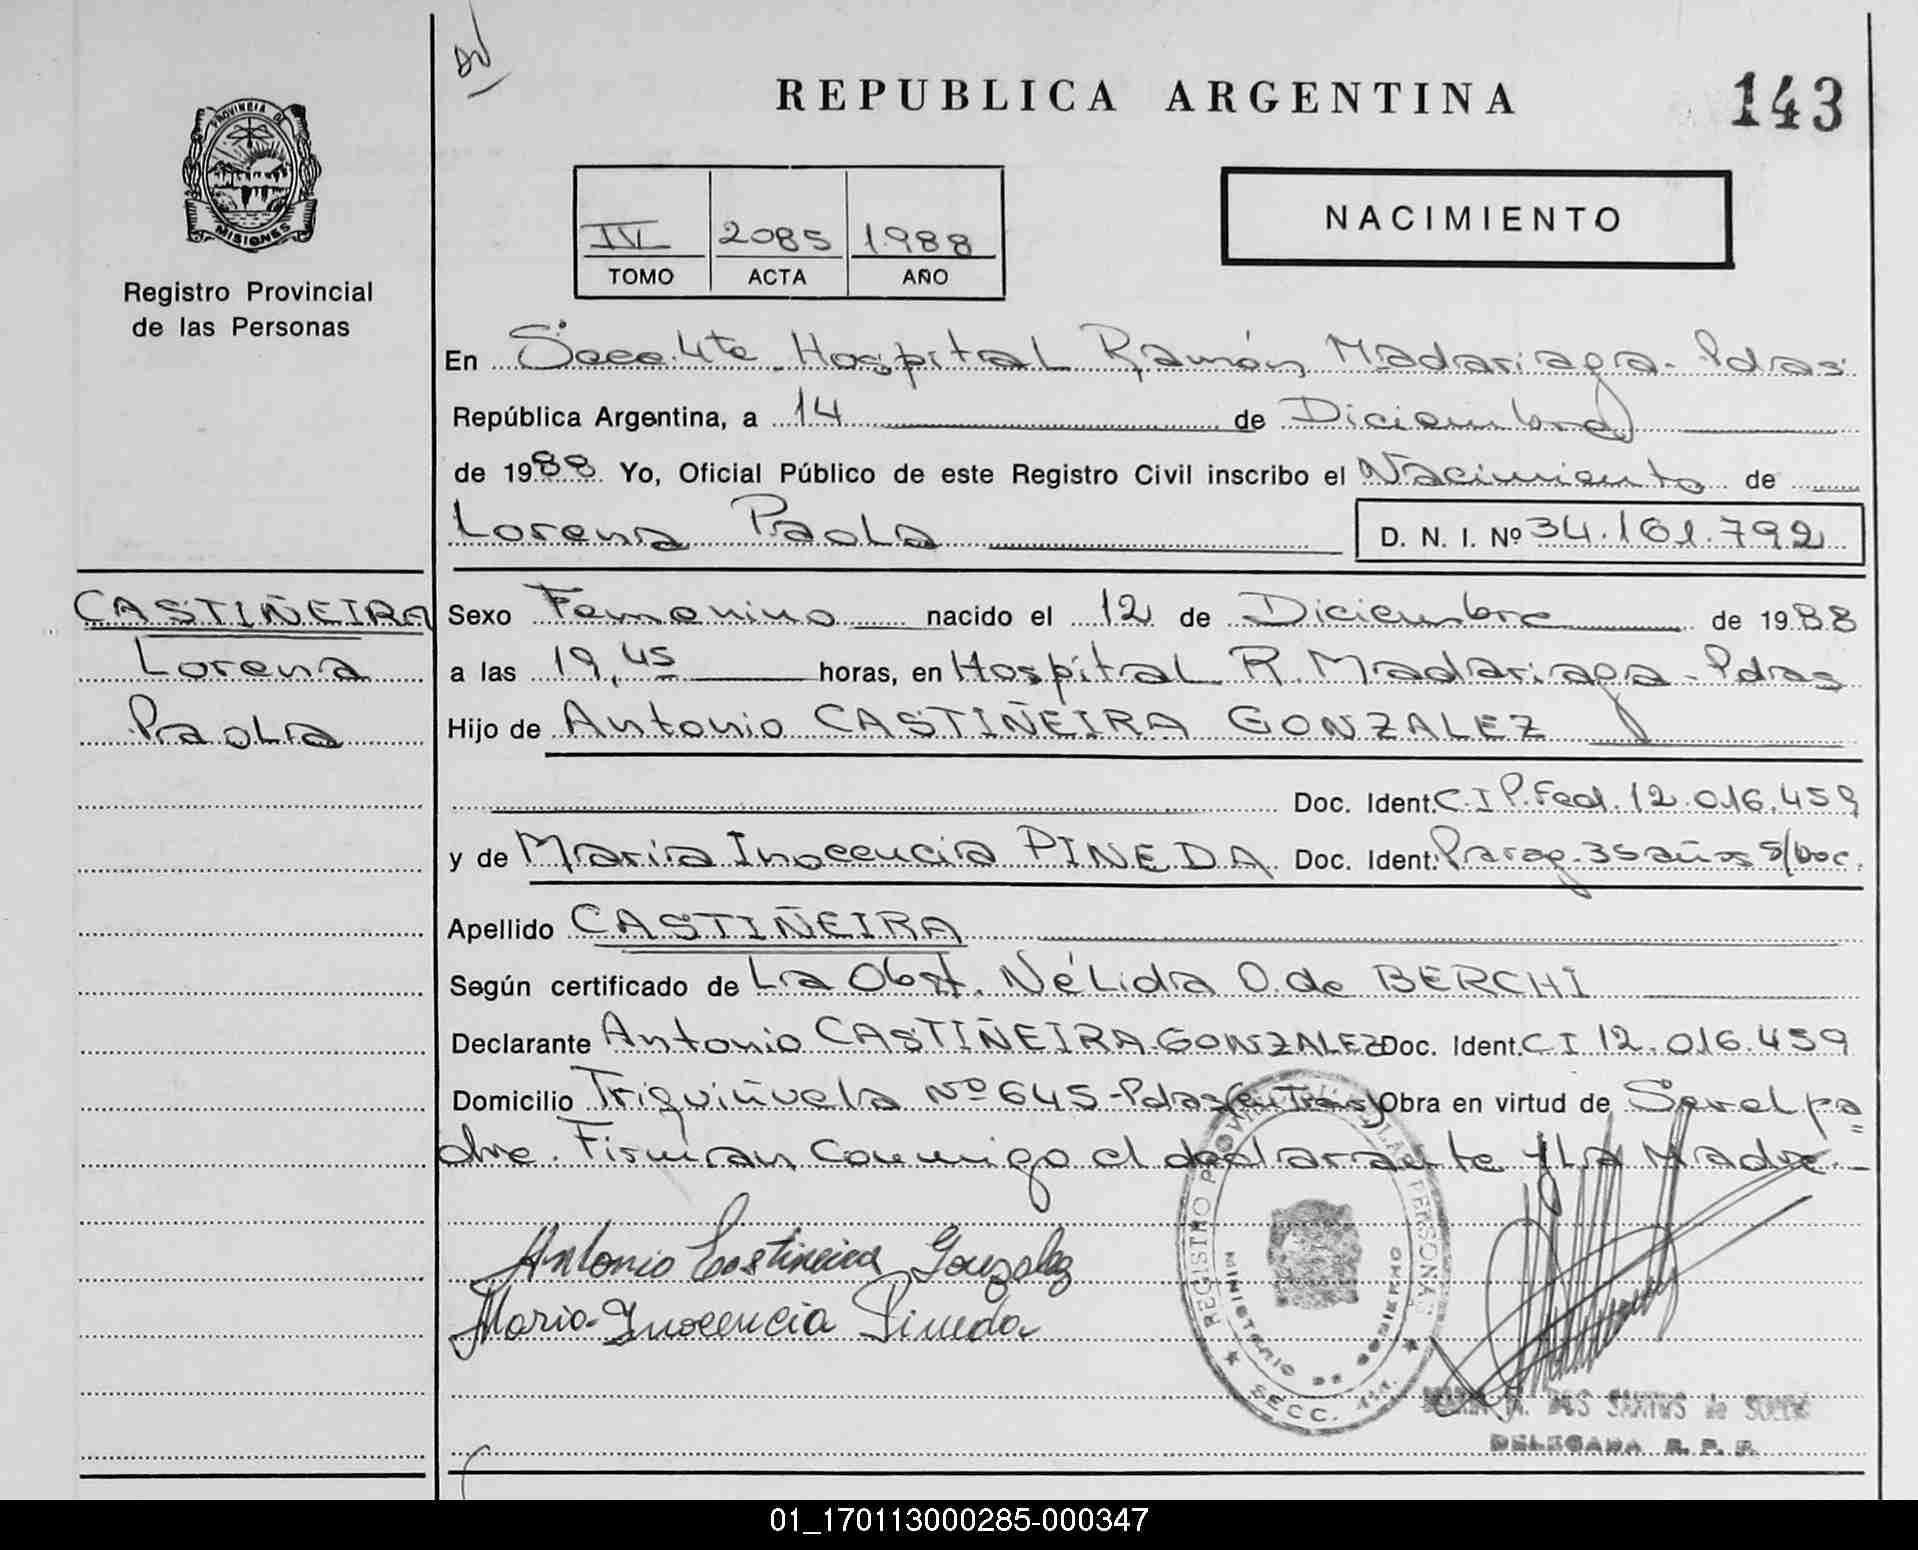 REPUBLICA ARGENTINA
143
PROVINCIA DE
MISIONES
Registro Provincial
de las Personas
IVL 2085 1988
TOMO ACTA AÑO
NACIMIENTO
En Secc. 4te. Hospital Ramón Madariaga - Pdas.
República Argentina, a 14 de Diciembre
de 1988 Yo, Oficial Público de este Registro Civil inscribo el Nacimiento de
Lorena Paola D. N. I. Nº 34.161.792
CASTIÑEIRA
Lorena
Paola
Sexo Femenino nacido el 12 de Diciembre de 1988
a las 19,45 horas, en Hospital R. Madariaga - Pdas
Hijo de Antonio CASTIÑEIRA GONZALEZ
Doc. Ident. C.I P.Fed. 12.016.459
y de María Inocencia PINEDA Doc. Ident. Parag. 35 años s/Doc.
Apellido CASTIÑEIRA
Según certificado de La Obst. Nélida O. de BERCHI
Declarante Antonio CASTIÑEIRA GONZALEZ Doc. Ident. C I 12.016.459
Domicilio Triquiñuela Nº 645 - Pdas (en Trans) Obra en virtud de Ser el pa=
dre. Firman conmigo el declarante y La Madre -
Antonio Castiñeira Gonzalez
Maria Inocencia Pineda
REGISTRO PROVINCIAL DE LAS PERSONAS
MINISTERIO DE GOBIERNO
SECC. 4ta.
DOS SANTOS de
DELEGADA R. P. P.
01_170113000285-000347